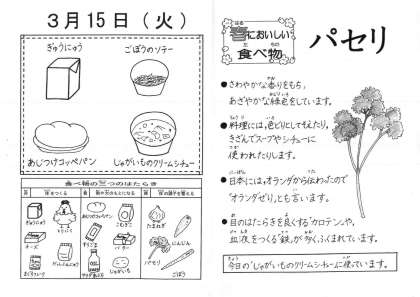 3月15日（火）
ぎゅうにゅう
ごぼうのソテー
あじつけコッペパン
じゃがいものクリームシチュー
食べ物の三つのはたらき
ぎゅうにゅう
とりにく
チーズ
あじつけコッペパン
こむぎこ
じゃがいも
バター
たまねぎ
にんじん
パセリ
ごぼう
春においしい
食べ物
パセリ
●さわやかな香りをもち、
あざやかな緑色をしています。
●料理には、色どりとしてそえたり、
きざんでスープやシチューに
使われたりします。
●日本には、オランダから伝わったので
「オランダゼリ」とも言います。
●目のはたらきを良くする「カロテン」や、
血液をつくる「鉄」が多くふくまれています。
今日の「じゃがいものクリームシチュー」に使っています。